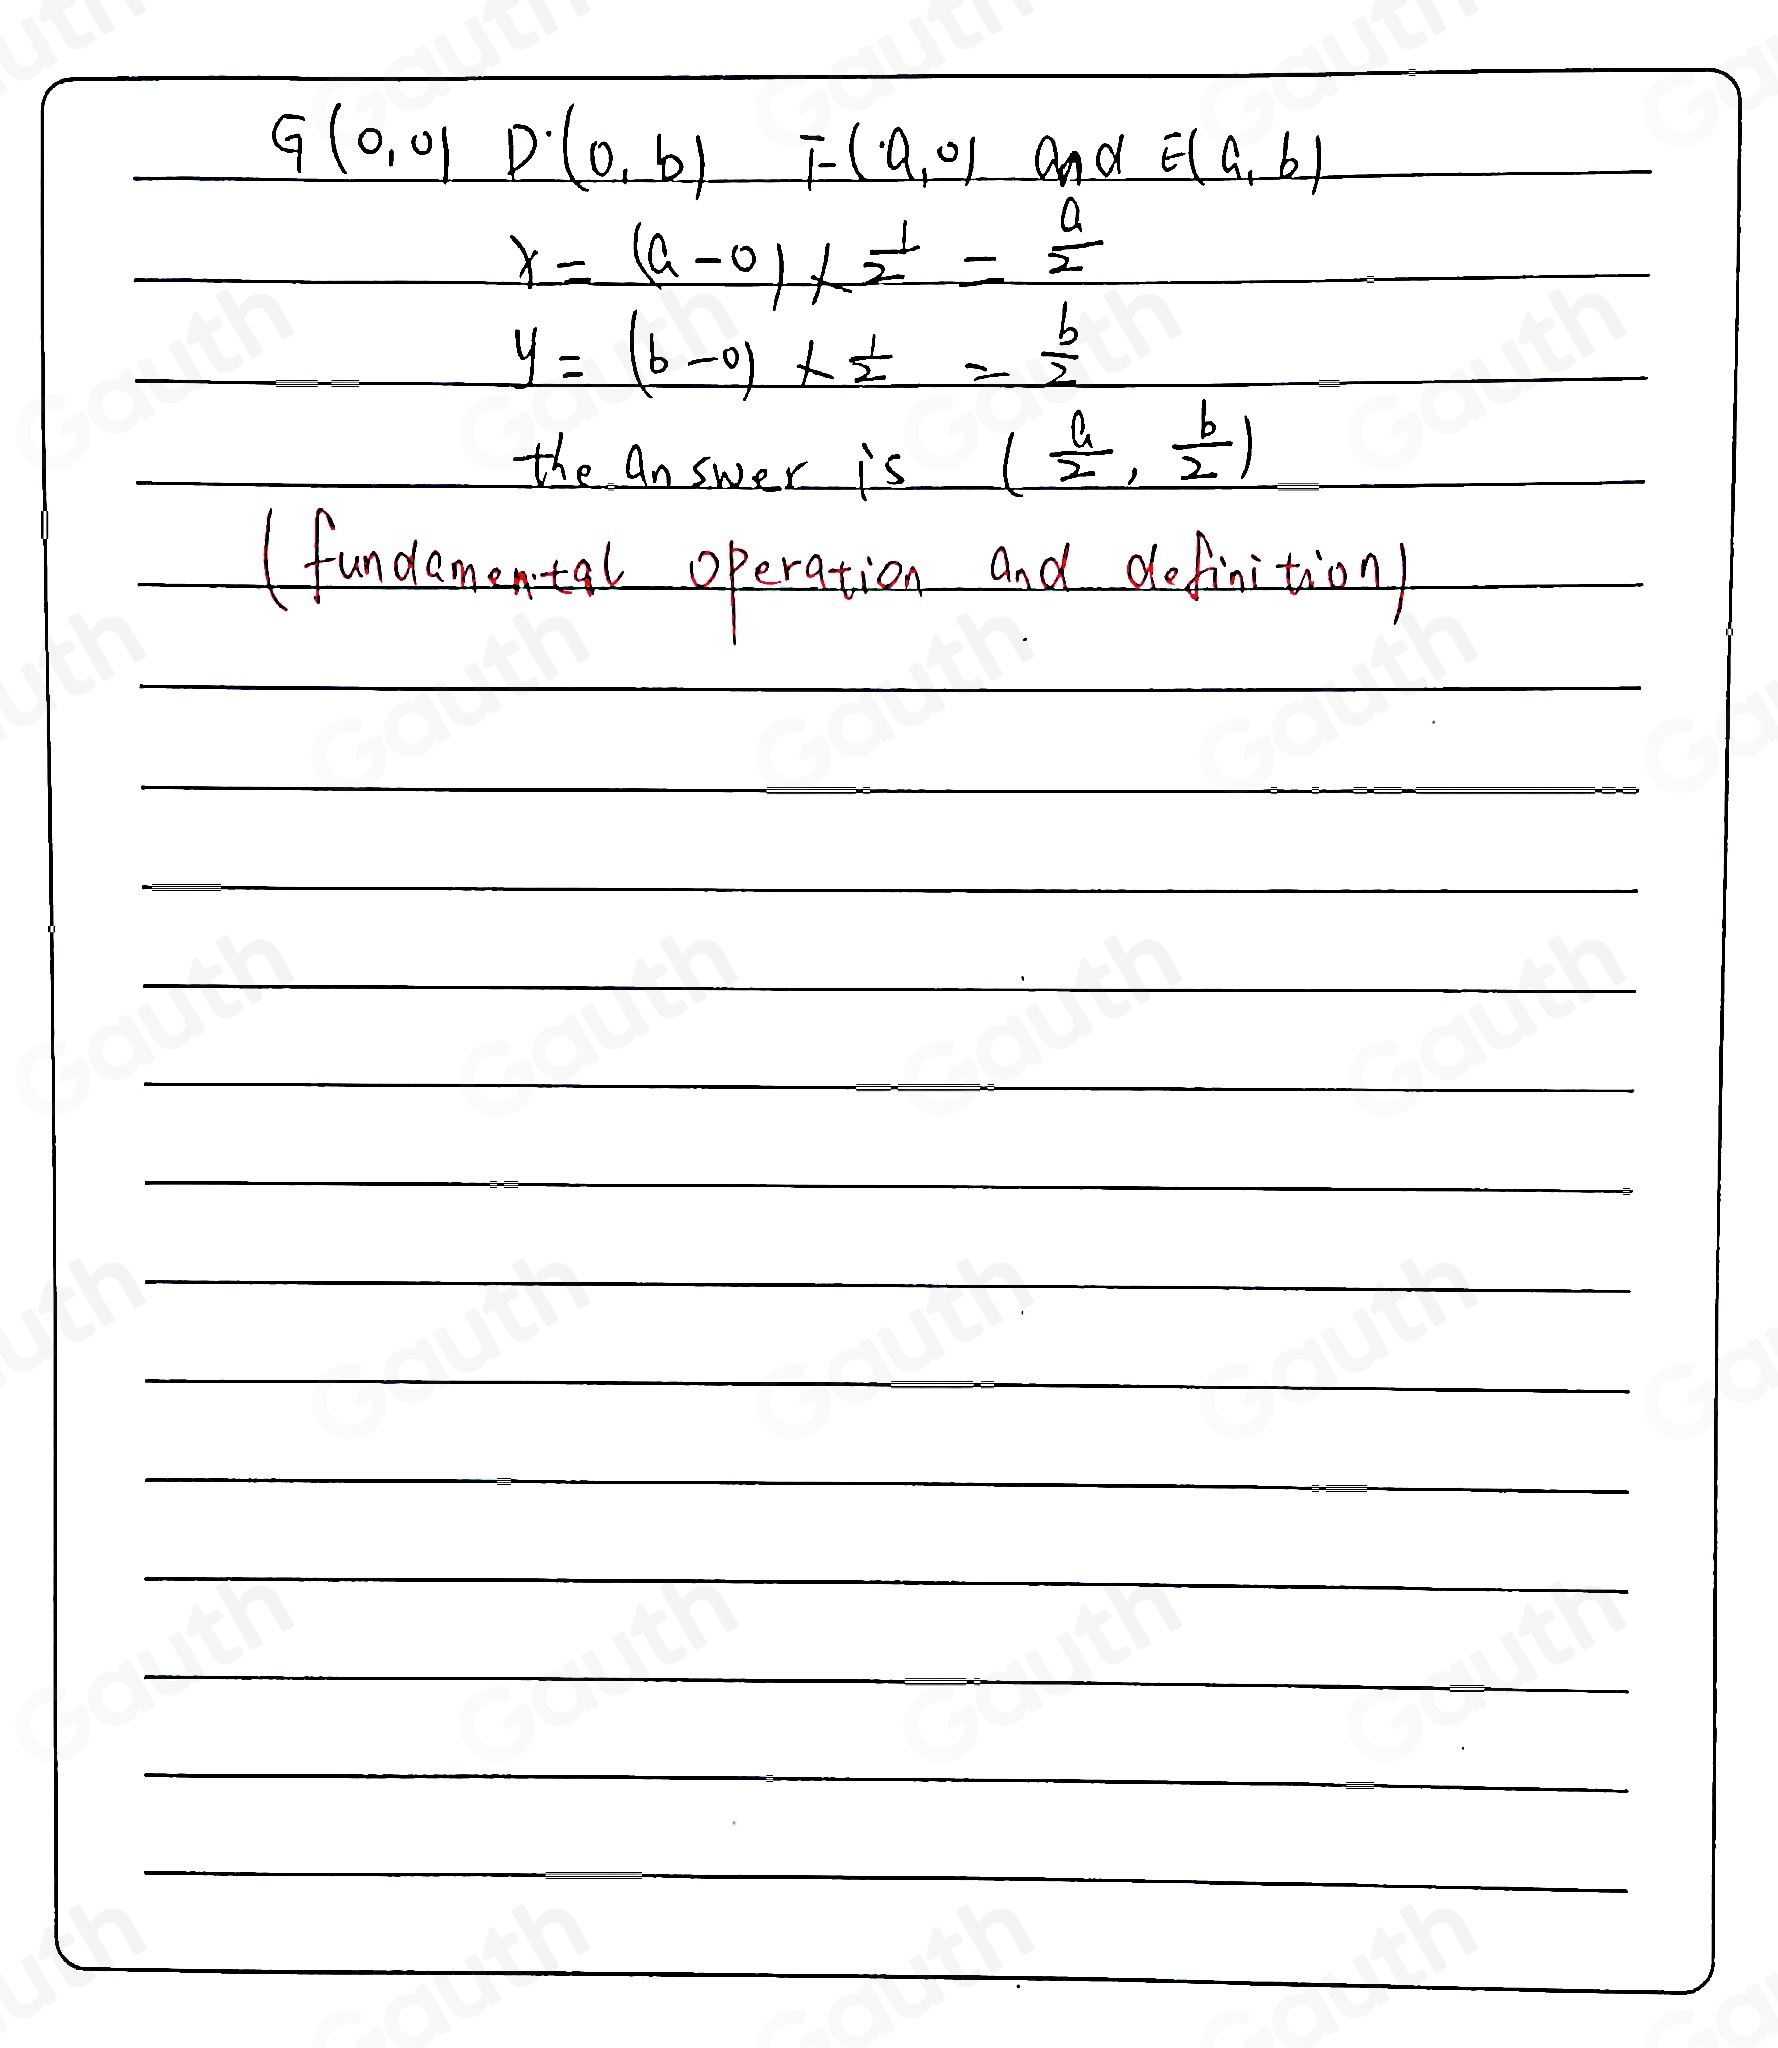 G(0,0) D(0,b) F(a,0) and E(a,b)
x = (a-0) × 1/2 = a/2
y = (b-0) × 1/2 = b/2
the answer is (a/2, b/2)
(fundamental operation and definition)
Gauth